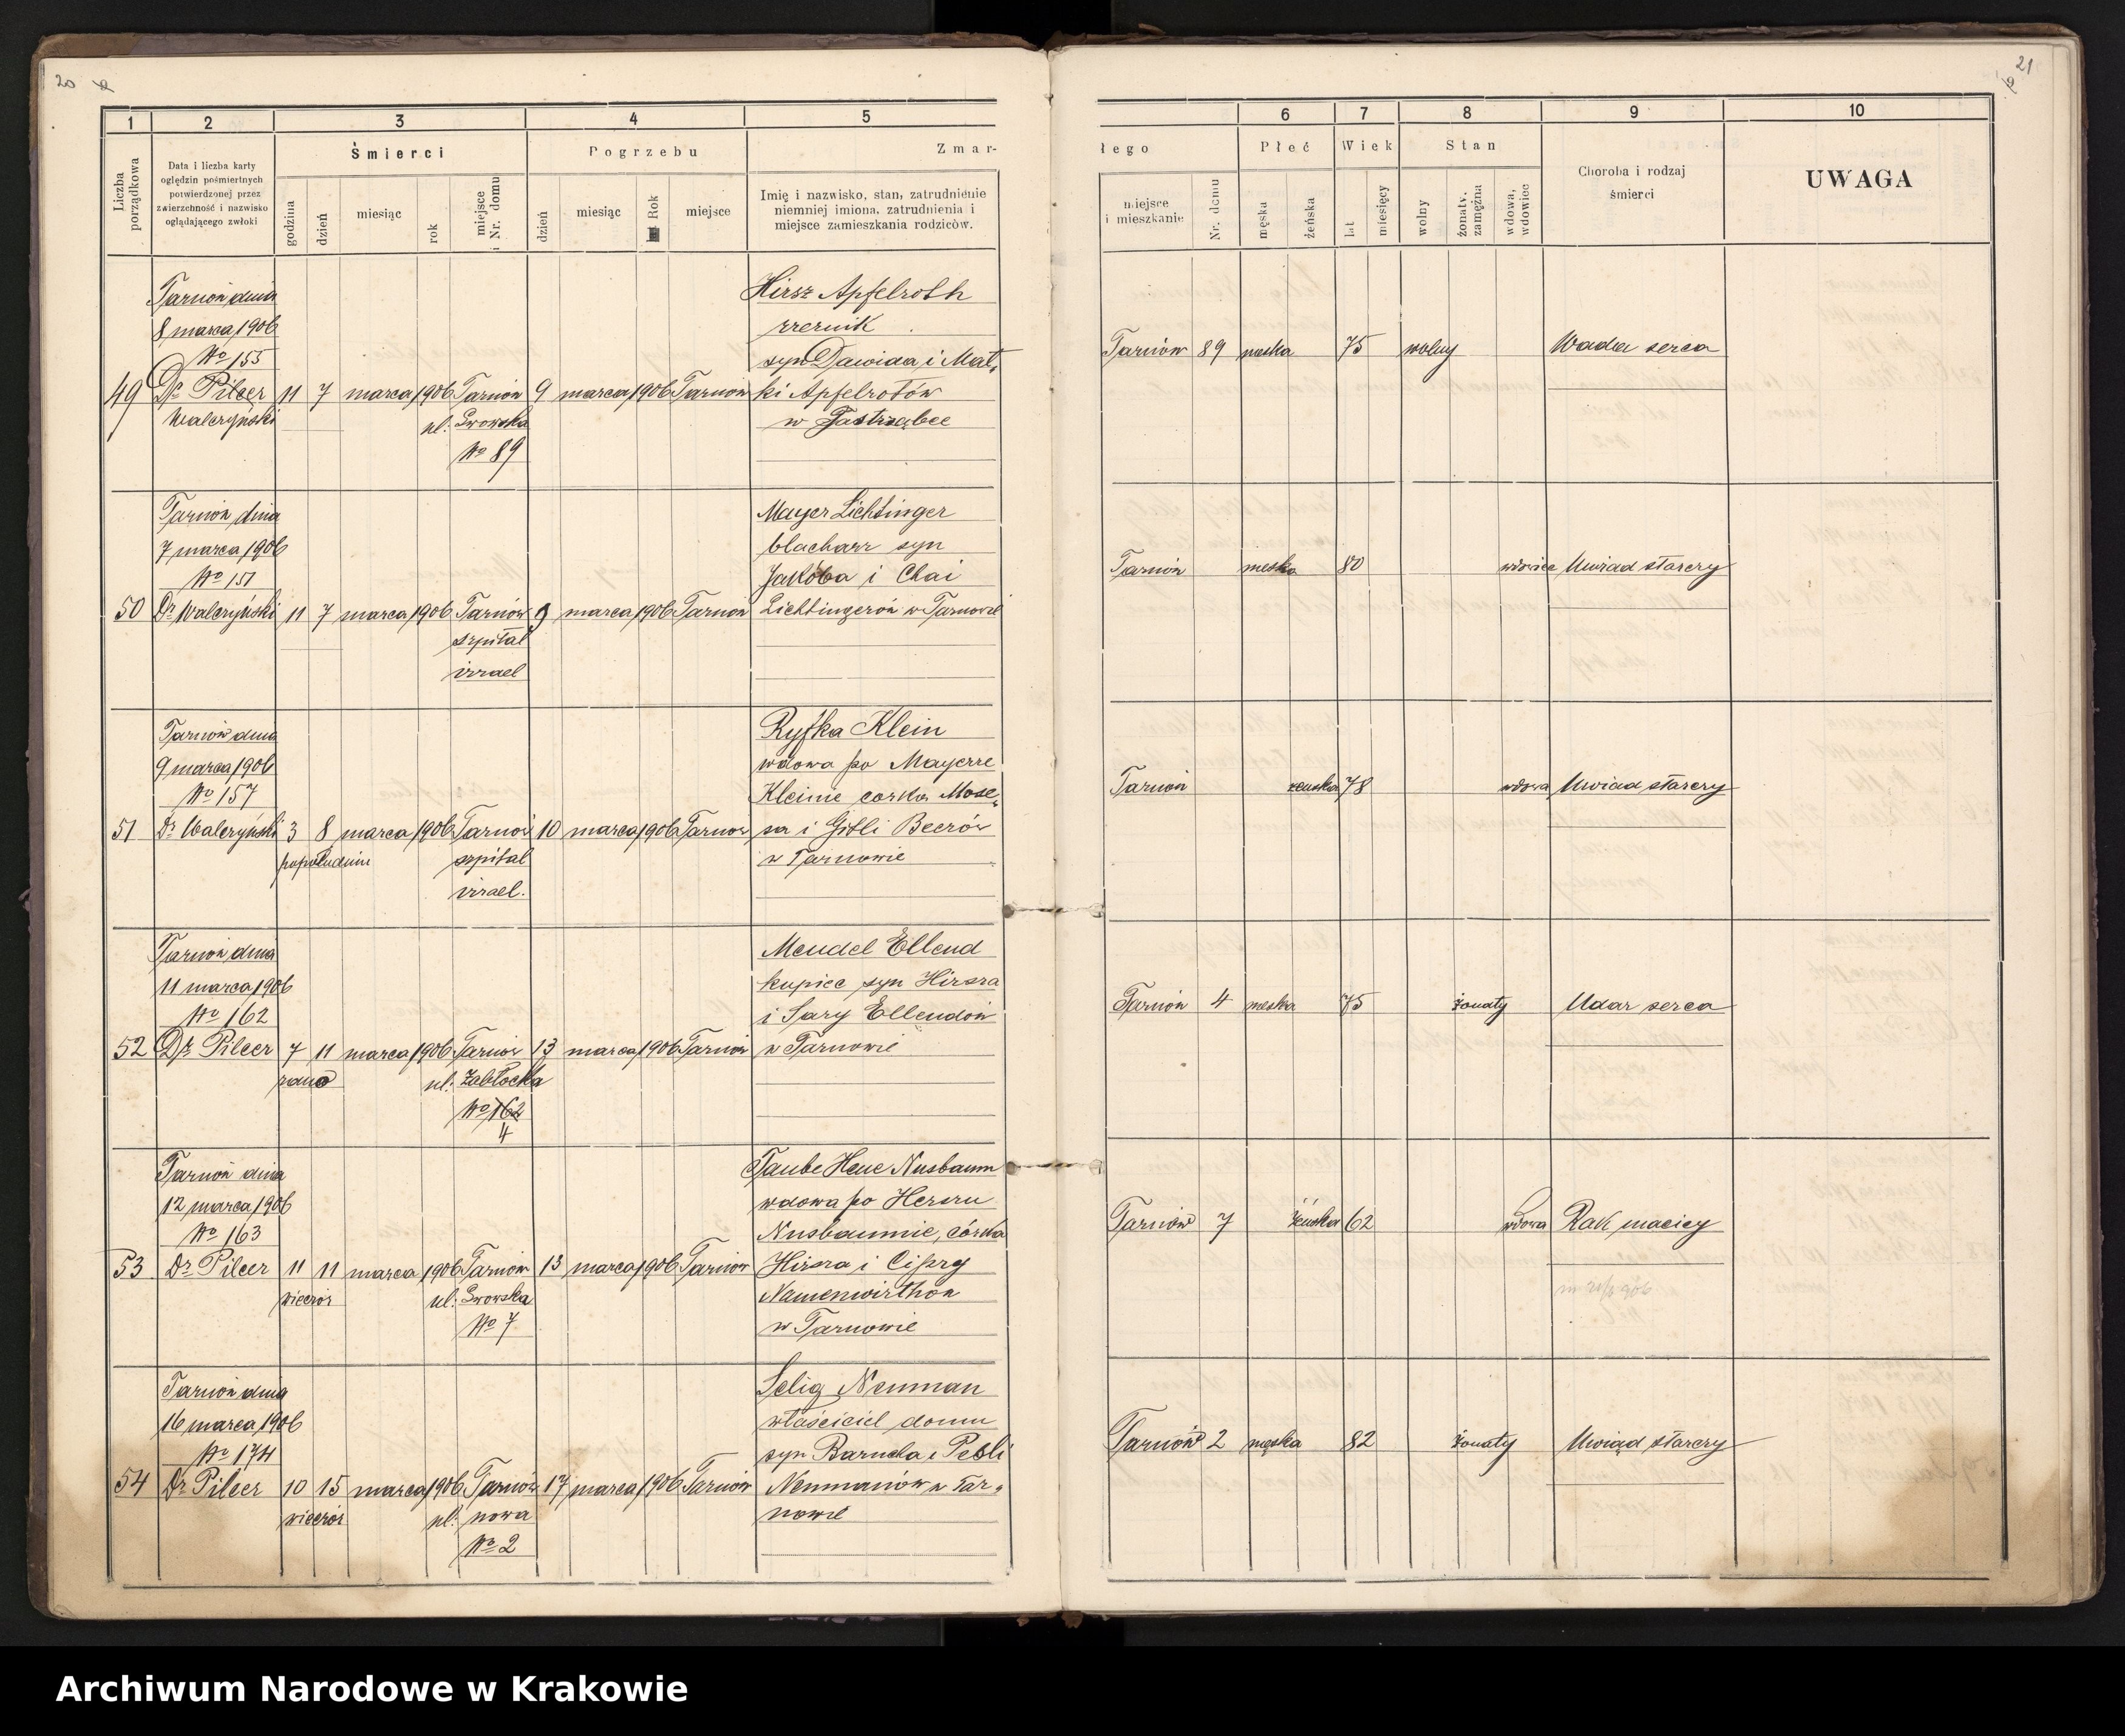 20
21
1 2 3 4 5 6 7 8 9 10
Śmierci
Pogrzebu
Zmar-
łego
Płeć
Wiek
Stan
Liczba porządkowa
Data i liczba karty
oględzin pośmiertnych
potwierdzonej przez
zwierzchność i nazwisko
oglądającego zwłoki
godzina
dzień
miesiąc
rok
miejsce i Nr. domu
dzień
miesiąc
Rok
miejsce
Imię i nazwisko, stan, zatrudnienie
niemniej imiona, zatrudnienia i
miejsce zamieszkania rodziców.
miejsce
i mieszkanie
Nr. domu
męska
żeńska
lat
miesięcy
wolny
żonaty, zamężna
wdowa, wdowiec
Choroba i rodzaj
śmierci
UWAGA
49
Tarnów dnia
8 marca 1906
No 155
Dr Pilcer
Walczyński
11 7 marca 1906 Tarnów
ul: Lwowska
No 89
9 marca 1906 Tarnów
Hirsz Apfelroth
syn Dawida i Mal„
ki Apfelrotów
w Jastrząbce
Tarnów 89 męska 75 wolny Wada serca
50
Tarnów dnia
7 marca 1906
No 151
Dr Walczyński
11 7 marca 1906 Tarnów
szpital
izrael
9 marca 1906 Tarnów
Mayer Lichtinger
blacharz syn
Jakóba i Chai
Lichtingerów w Tarnowie
Tarnów męska 80 wdowiec Uwiąd starczy
51
Tarnów dnia
9 marca 1906
No 157
Dr Walczyński
3 8 marca 1906 Tarnów
popołudniu szpital
izrael.
10 marca 1906 Tarnów
Ryfka Klein
wdowa po Mayerze
Kleinie corka Mose„
sa i Gitli Beerów
w Tarnowie
Tarnów żeńska 78 wdowa Uwiąd starczy
52
Tarnów dnia
11 marca 1906
No 162
Dr Pilcer
7 11 marca 1906 Tarnów
rano ul: Zabłocka
No 162
4
13 marca 1906 Tarnów
Mendel Ellend
kupiec syn Hirsza
i Sary Ellendów
w Tarnowie
Tarnów 4 męska 75 żonaty Udar serca
53
Tarnów dnia
12 marca 1906
No 163
Dr Pilcer
11 11 marca 1906 Tarnów
wieczór ul: Lwowska
No 7
13 marca 1906 Tarnów
Taube Hene Nusbaum
wdowa po Herszu
Nusbaumie, córka
Hirsza i Cipry
Namenwirthów
w Tarnowie
Tarnów 7 żeńska 62 wdowa Rak macicy
54
Tarnów dnia
16 marca 1906
No 174
Dr Pilcer
10 15 marca 1906 Tarnów
wieczór ul: nowa
No 2
17 marca 1906 Tarnów
Selig Neuman
właściciel domu
syn Barucha i Pesli
Neumanów w Tar„
nowie
Tarnów 2 męska 82 żonaty Uwiąd starczy
Archiwum Narodowe w Krakowie